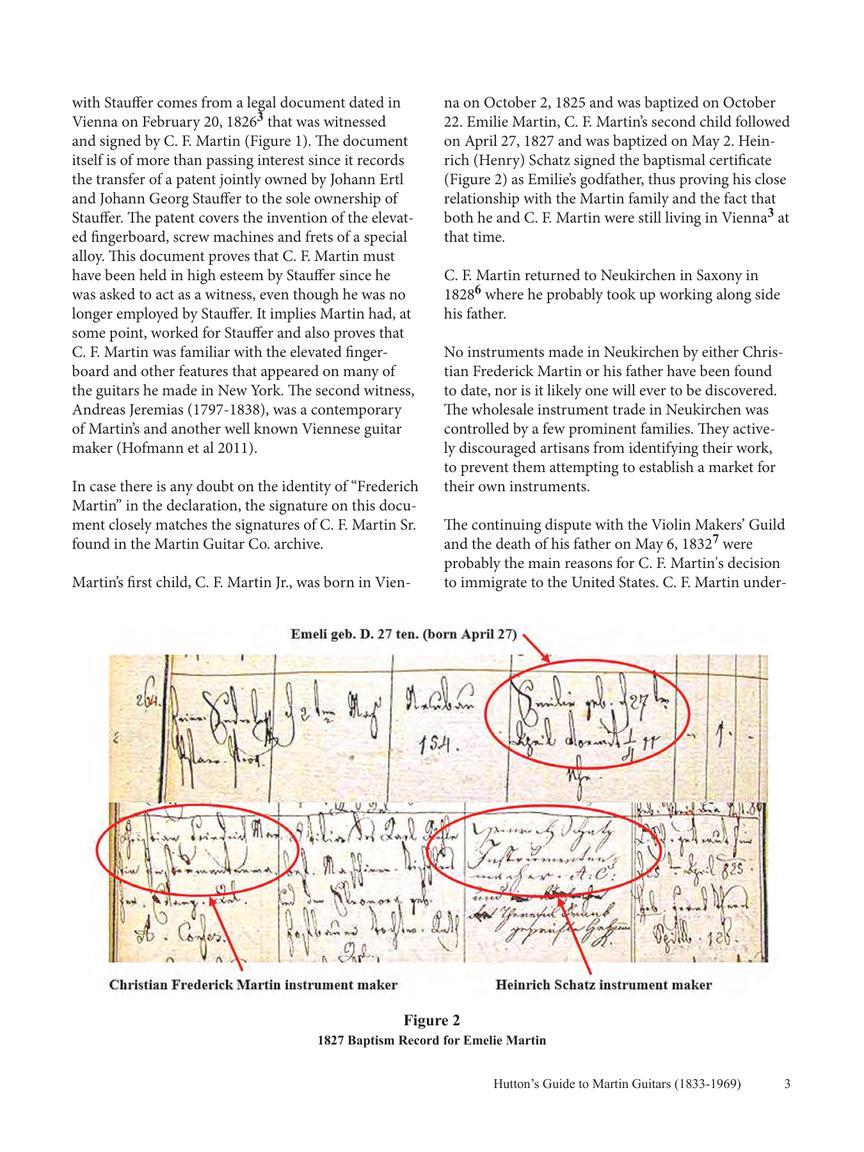 with Stauffer comes from a legal document dated in
Vienna on February 20, 1826³ that was witnessed
and signed by C. F. Martin (Figure 1). The document
itself is of more than passing interest since it records
the transfer of a patent jointly owned by Johann Ertl
and Johann Georg Stauffer to the sole ownership of
Stauffer. The patent covers the invention of the elevat-
ed fingerboard, screw machines and frets of a special
alloy. This document proves that C. F. Martin must
have been held in high esteem by Stauffer since he
was asked to act as a witness, even though he was no
longer employed by Stauffer. It implies Martin had, at
some point, worked for Stauffer and also proves that
C. F. Martin was familiar with the elevated finger-
board and other features that appeared on many of
the guitars he made in New York. The second witness,
Andreas Jeremias (1797-1838), was a contemporary
of Martin's and another well known Viennese guitar
maker (Hofmann et al 2011).
In case there is any doubt on the identity of “Frederich
Martin” in the declaration, the signature on this docu-
ment closely matches the signatures of C. F. Martin Sr.
found in the Martin Guitar Co. archive.
Martin's first child, C. F. Martin Jr., was born in Vien-
na on October 2, 1825 and was baptized on October
22. Emilie Martin, C. F. Martin's second child followed
on April 27, 1827 and was baptized on May 2. Hein-
rich (Henry) Schatz signed the baptismal certificate
(Figure 2) as Emilie's godfather, thus proving his close
relationship with the Martin family and the fact that
both he and C. F. Martin were still living in Vienna³ at
that time.
C. F. Martin returned to Neukirchen in Saxony in
1828⁶ where he probably took up working along side
his father.
No instruments made in Neukirchen by either Chris-
tian Frederick Martin or his father have been found
to date, nor is it likely one will ever to be discovered.
The wholesale instrument trade in Neukirchen was
controlled by a few prominent families. They active-
ly discouraged artisans from identifying their work,
to prevent them attempting to establish a market for
their own instruments.
The continuing dispute with the Violin Makers' Guild
and the death of his father on May 6, 1832⁷ were
probably the main reasons for C. F. Martin's decision
to immigrate to the United States. C. F. Martin under-
Emeli geb. D. 27 ten. (born April 27)
264.
154.
Emilie geb. 27
Heinrich Schatz
Instrumenten
macher. A.C.
und
Christian Frederick Martin instrument maker
Heinrich Schatz instrument maker
Figure 2
1827 Baptism Record for Emelie Martin
Hutton's Guide to Martin Guitars (1833-1969) 3